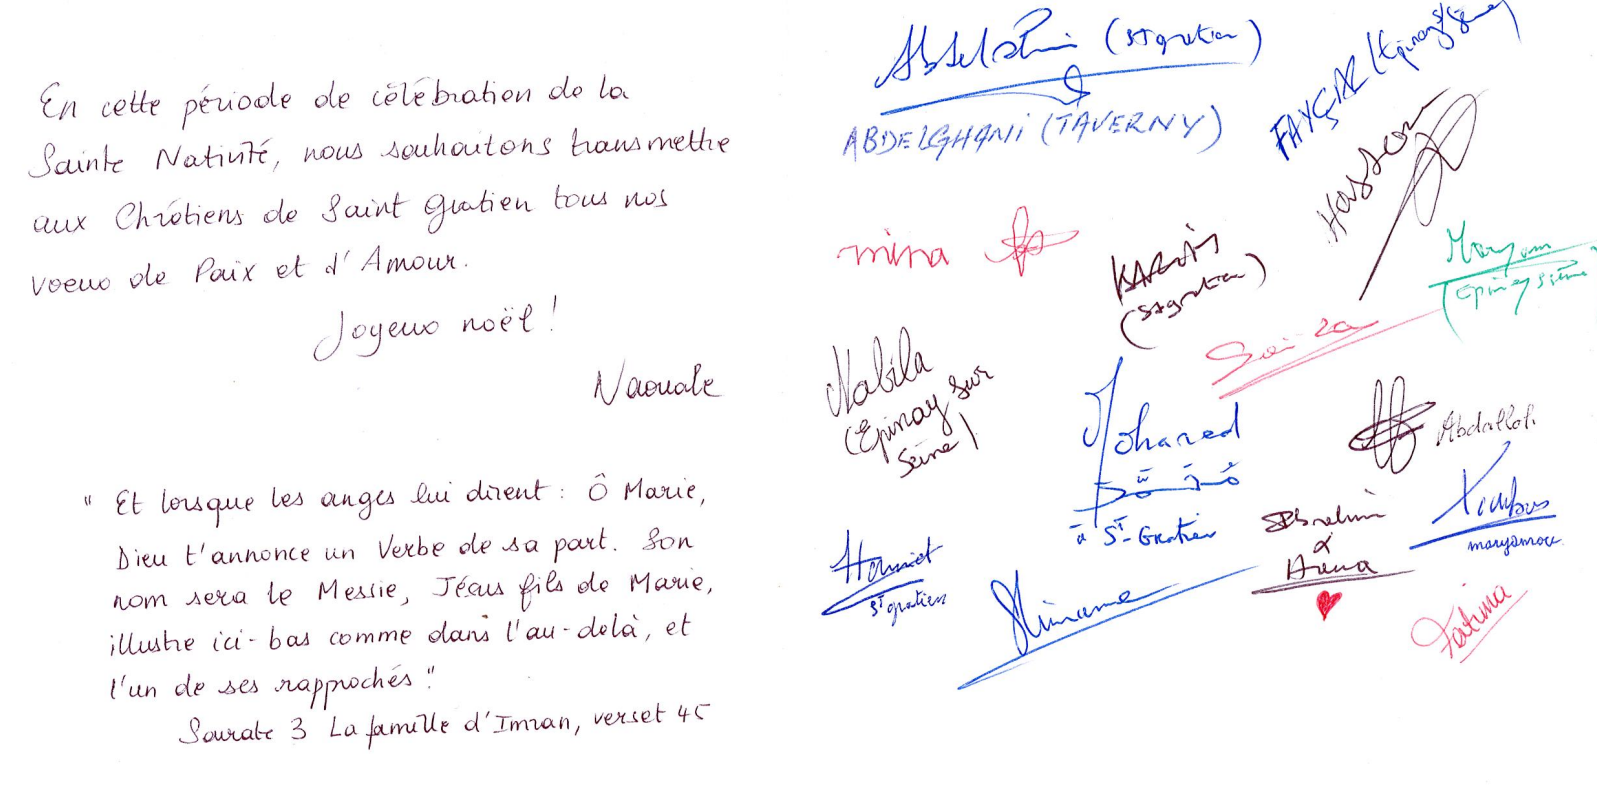 En cette période de célébration de la
Sainte Nativité, nous souhaitons transmettre
aux Chrétiens de Saint Gratien tous nos
voeux de Paix et d'Amour.
Joyeux noël !
Naouale
" Et lorsque les anges lui dirent : Ô Marie,
Dieu t'annonce un Verbe de sa part. Son
nom sera le Messie, Jésus fils de Marie,
illustre ici-bas comme dans l'au-delà, et
l'un de ses rapprochés "
Sourate 3 La famille d'Imran, verset 45
(St gratien)
ABDELGHANI (TAVERNY)
FAYÇAL (Epinay s/ Seine)
mina
(St gratien)
Maryam
(Epinay s/ Seine)
Nabila
(Epinay sur
Seine)
Mohamed
à St-Gratien
Abdallah
Ibrahim
&
St gratien
Fatima